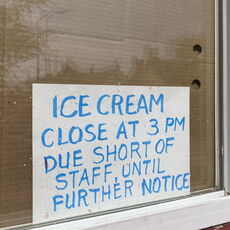 ICE CREAM
CLOSE AT 3 PM
DUE SHORT OF
STAFF, UNTIL
FURTHER NOTICE